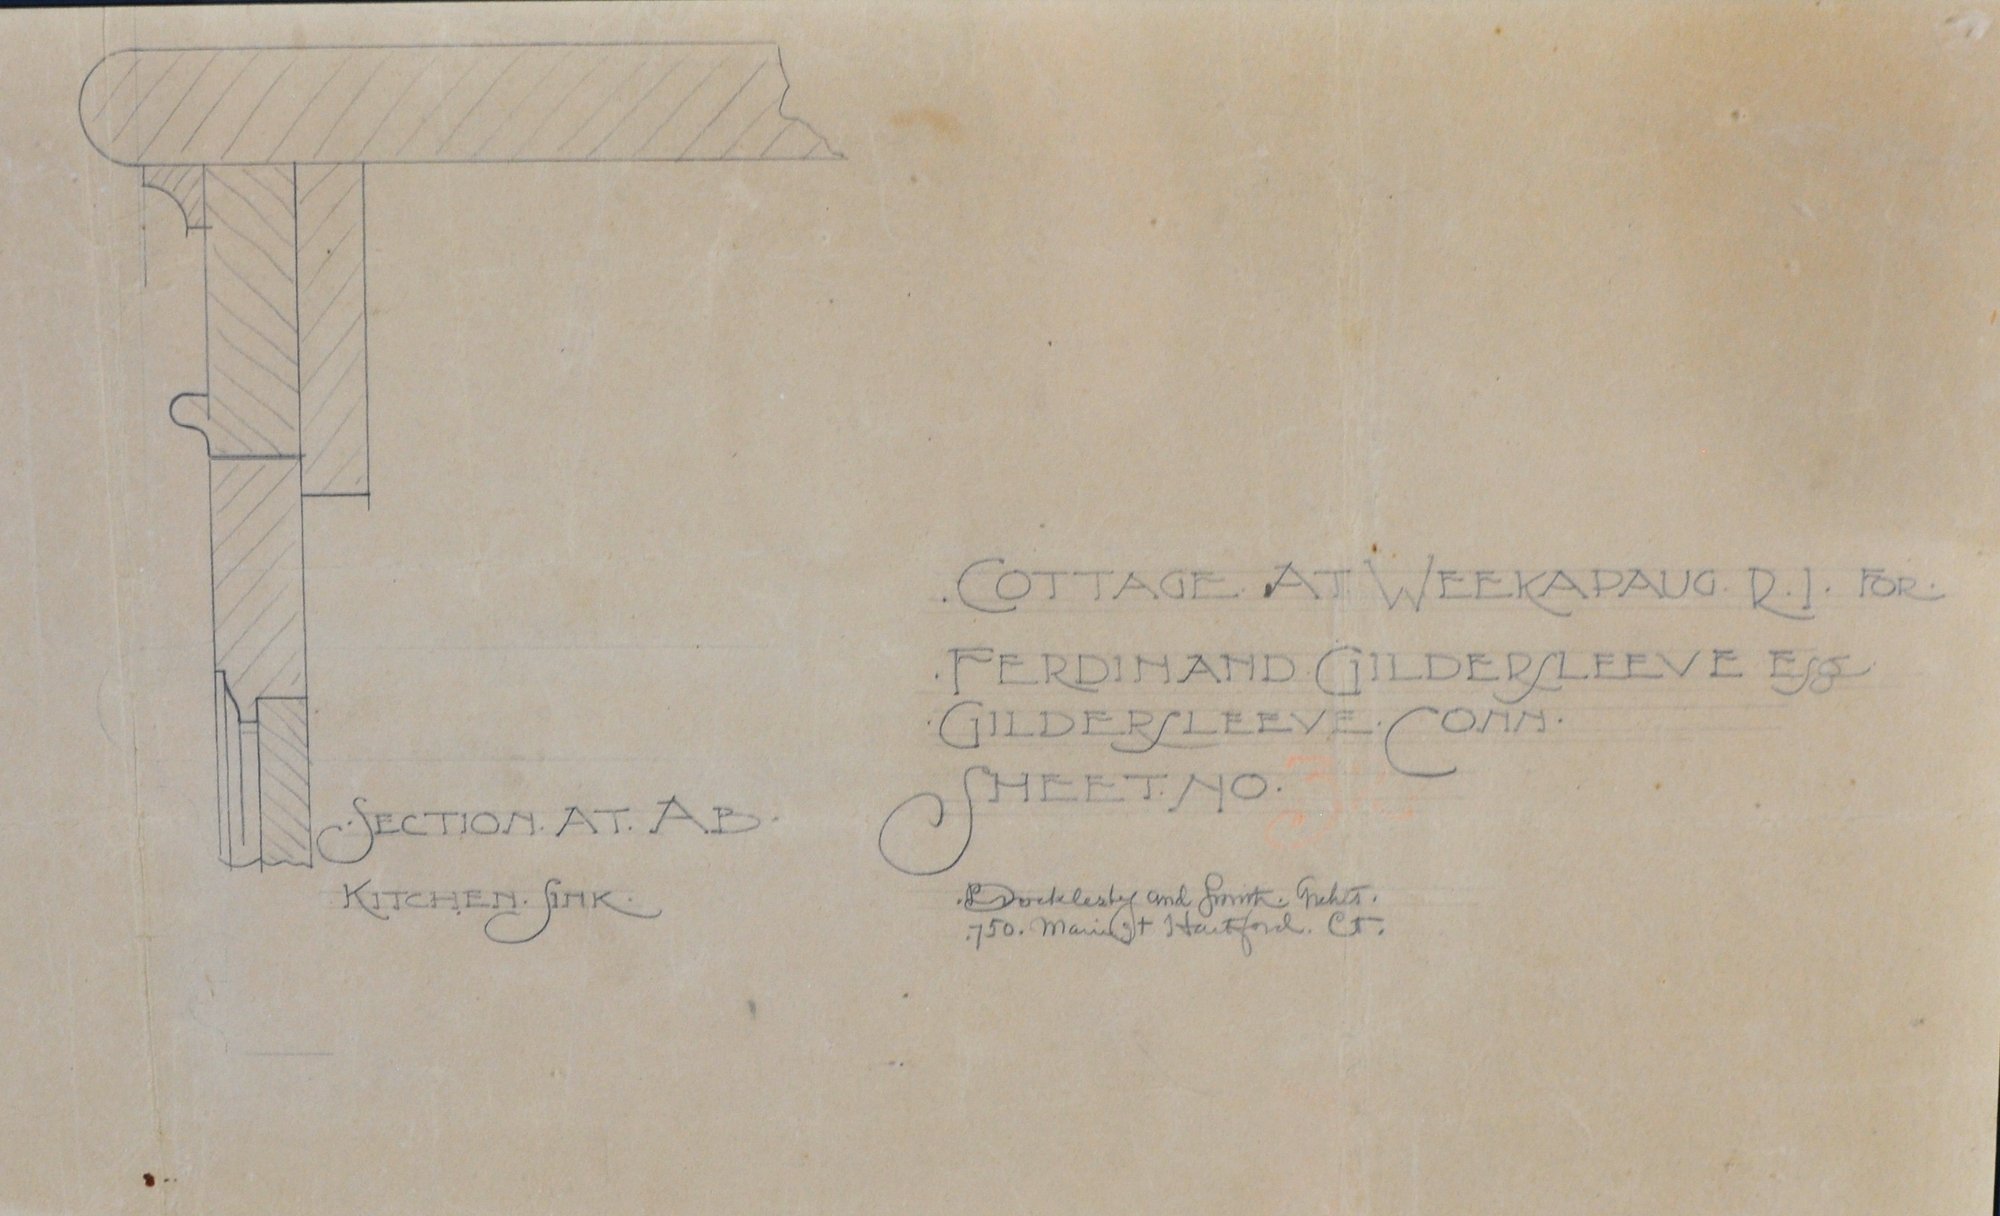 .COTTAGE. AT WEEKAPAUG. R.I. FOR.
.FERDINAND. GILDERSLEEVE ESQ
.GILDERSLEEVE. CONN.
SHEET. NO.
.SECTION. AT. AB.
KITCHEN. SINK.
and Smith. Archts.
.750. Main St Hartford. Ct.